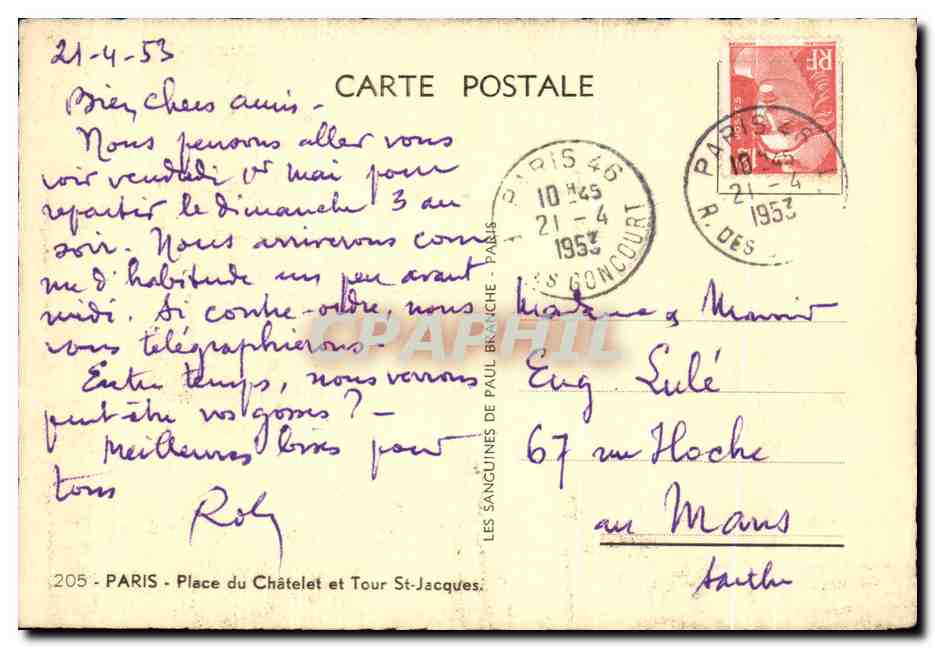 21-4-53
CARTE POSTALE
RF
Bien chers amis -
Nous pensons aller vous
voir vendredi 1er mai pour
repartir le dimanche 3 au
soir. Nous arriverons com
me d'habitude un peu avant
midi. Si contre-ordre, nous
vous télégraphierons -
Entre temps, nous verrons
peut-être vos gosses ? -
Meilleures bises pour
tous
Roby
PARIS 46
10 H 45
21 - 4
1953
GONCOURT
PARIS 46
10 H 45
21 - 4
1953
R. DES
LES SANGUINES DE PAUL BRANCHE - PARIS
Madame & Monsieur
Eug Lulé
67 rue Hoche
au Mans
Sarthe
CPAPHIL
205 - PARIS - Place du Châtelet et Tour St-Jacques.